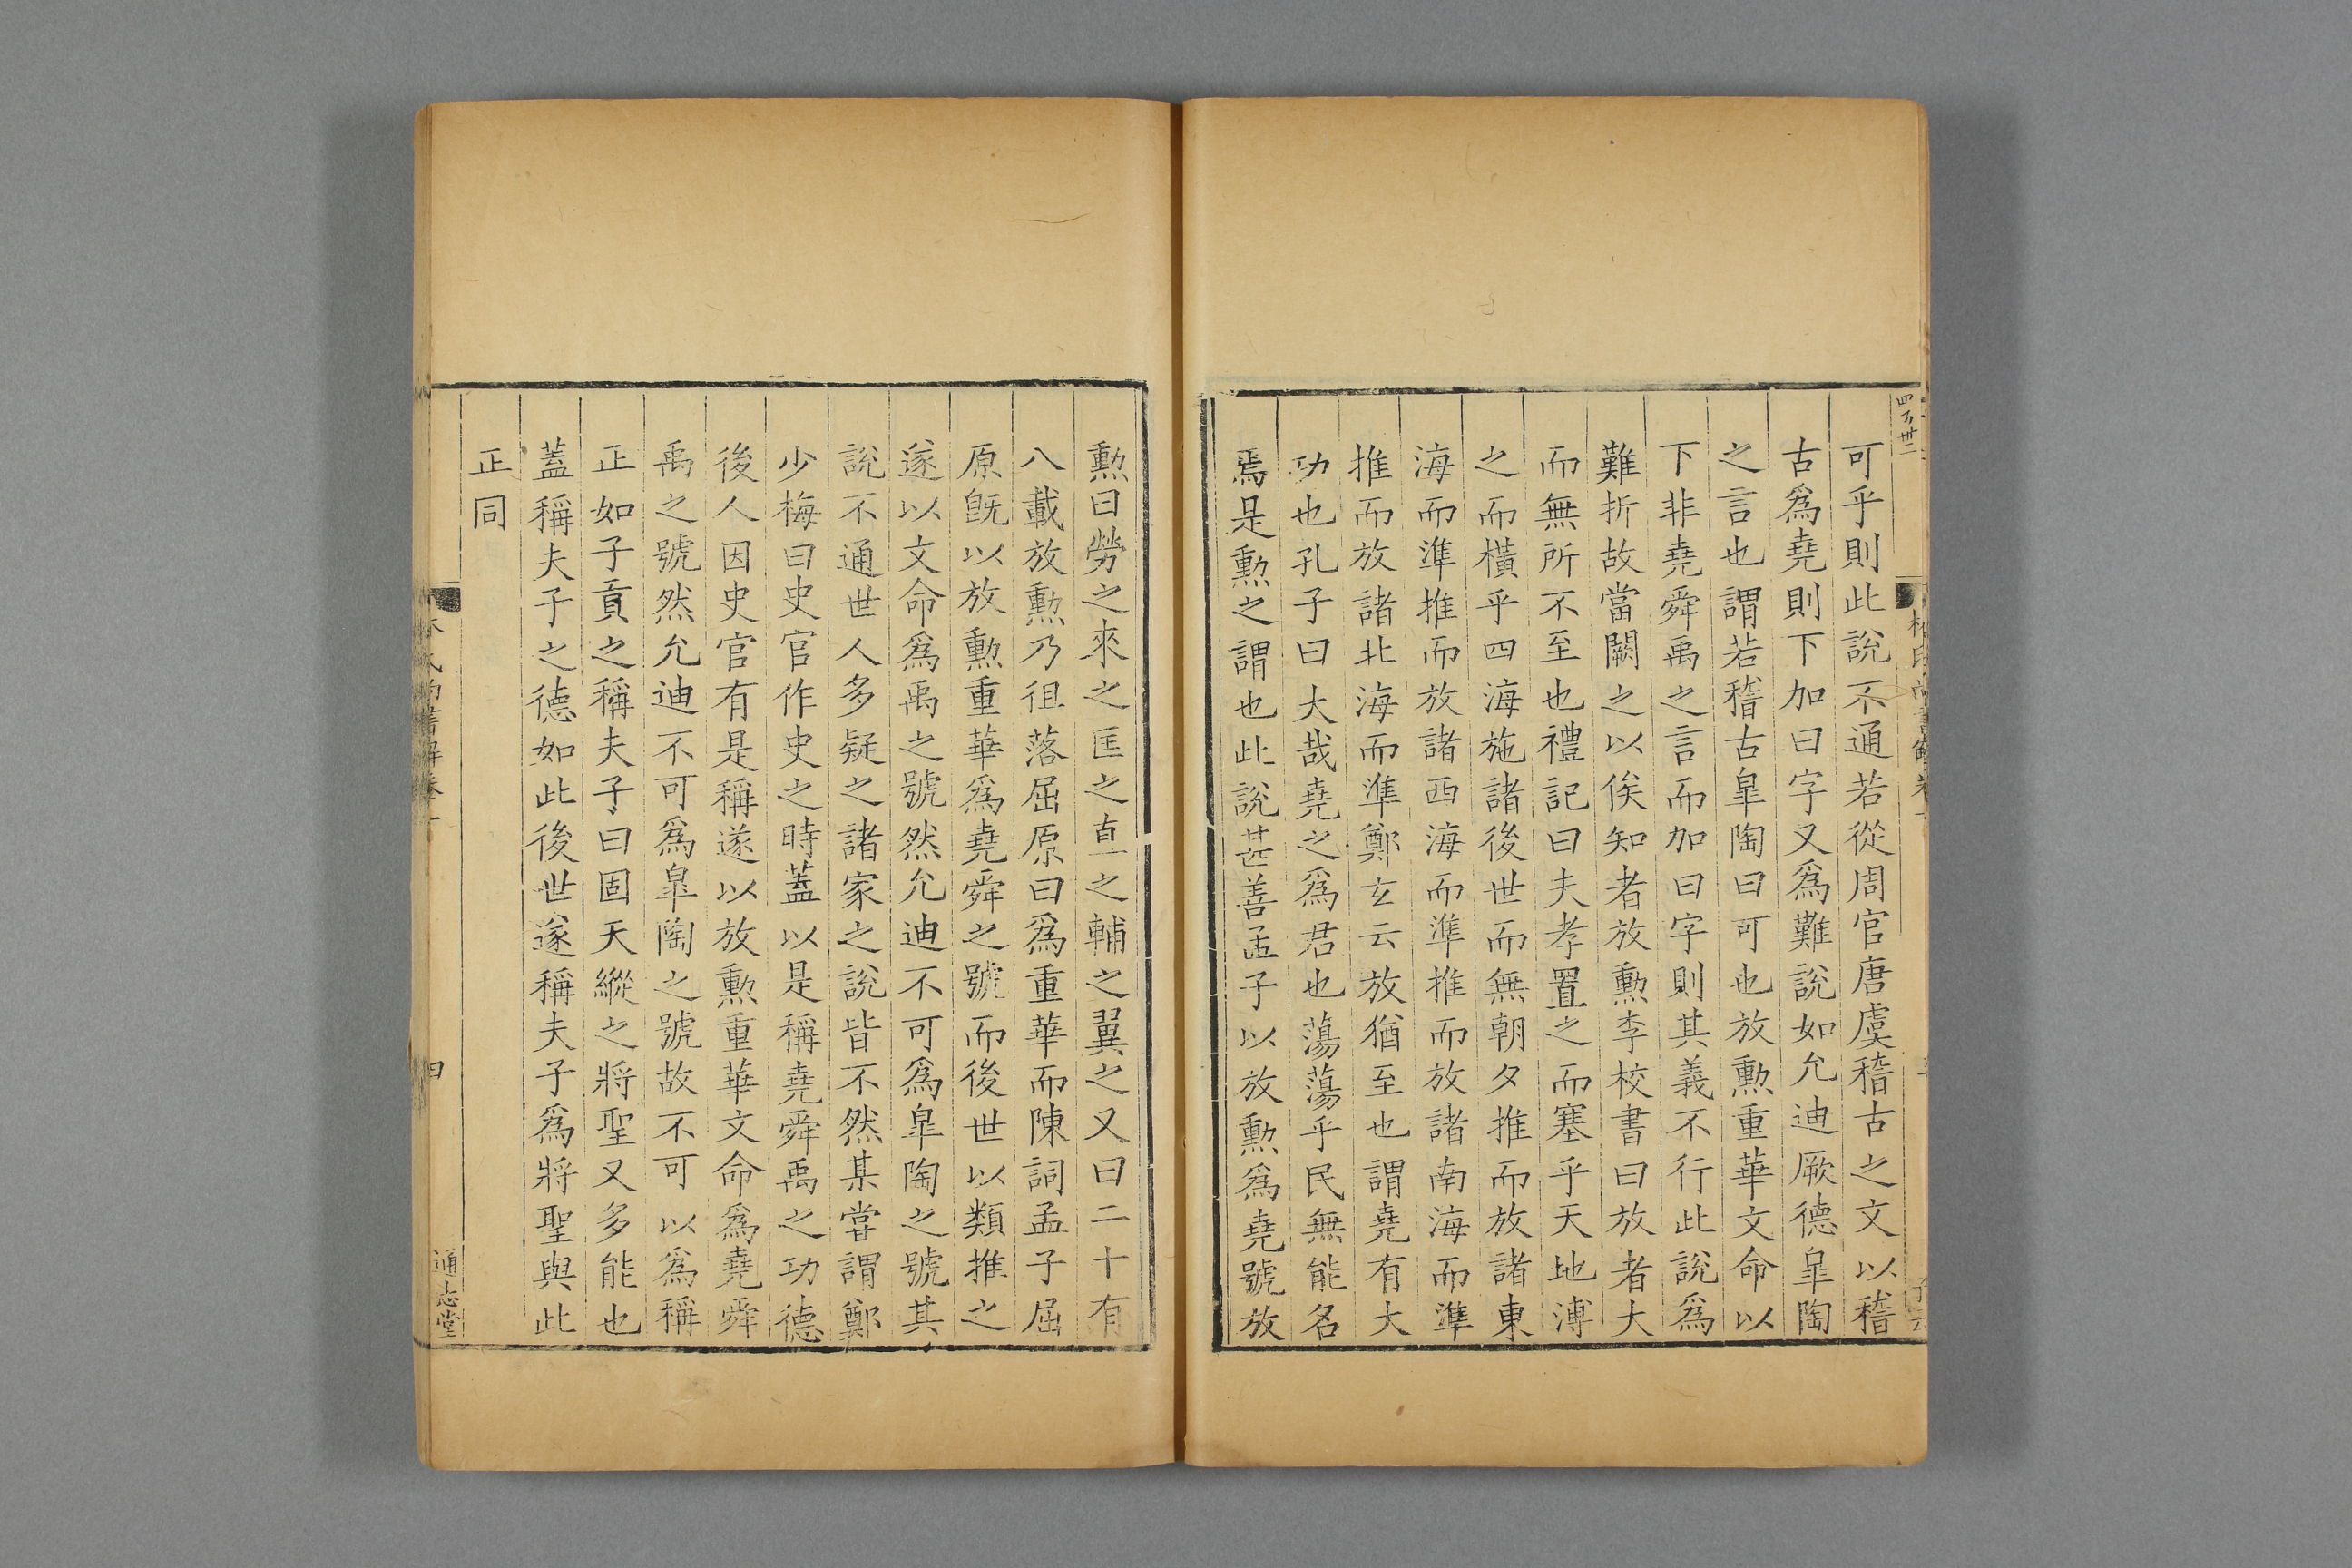 四百卅二
可乎則此說不通若從周官唐虞稽古之文以稽
古爲堯則下加曰字又爲難說如允迪厥德臯陶
之言也謂若稽古臯陶曰可也放勲重華文命以
下非堯舜禹之言而加曰字則其義不行此說爲
難折故當闕之以俟知者放勲李校書曰放者大
而無所不至也禮記曰夫孝置之而塞乎天地溥
之而橫乎四海施諸後世而無朝夕推而放諸東
海而準推而放諸西海而準推而放諸南海而準
推而放諸北海而準鄭玄云放猶至也謂堯有大
功也孔子曰大哉堯之爲君也蕩蕩乎民無能名
焉是勲之謂也此說甚善孟子以放勲爲堯號放
勲曰勞之來之匡之直之輔之翼之又曰二十有
八載放勲乃徂落屈原曰爲重華而陳詞孟子屈
原旣以放勲重華爲堯舜之號而後世以類推之
遂以文命爲禹之號然允迪不可爲臯陶之號其
說不通世人多疑之諸家之說皆不然某嘗謂鄭
少梅曰史官作史之時蓋以是稱堯舜禹之功德
後人因史官有是稱遂以放勲重華文命爲堯舜
禹之號然允迪不可爲臯陶之號故不可以爲稱
正如子貢之稱夫子曰固天縱之將聖又多能也
蓋稱夫子之德如此後世遂稱夫子爲將聖與此
正同
四
通志堂